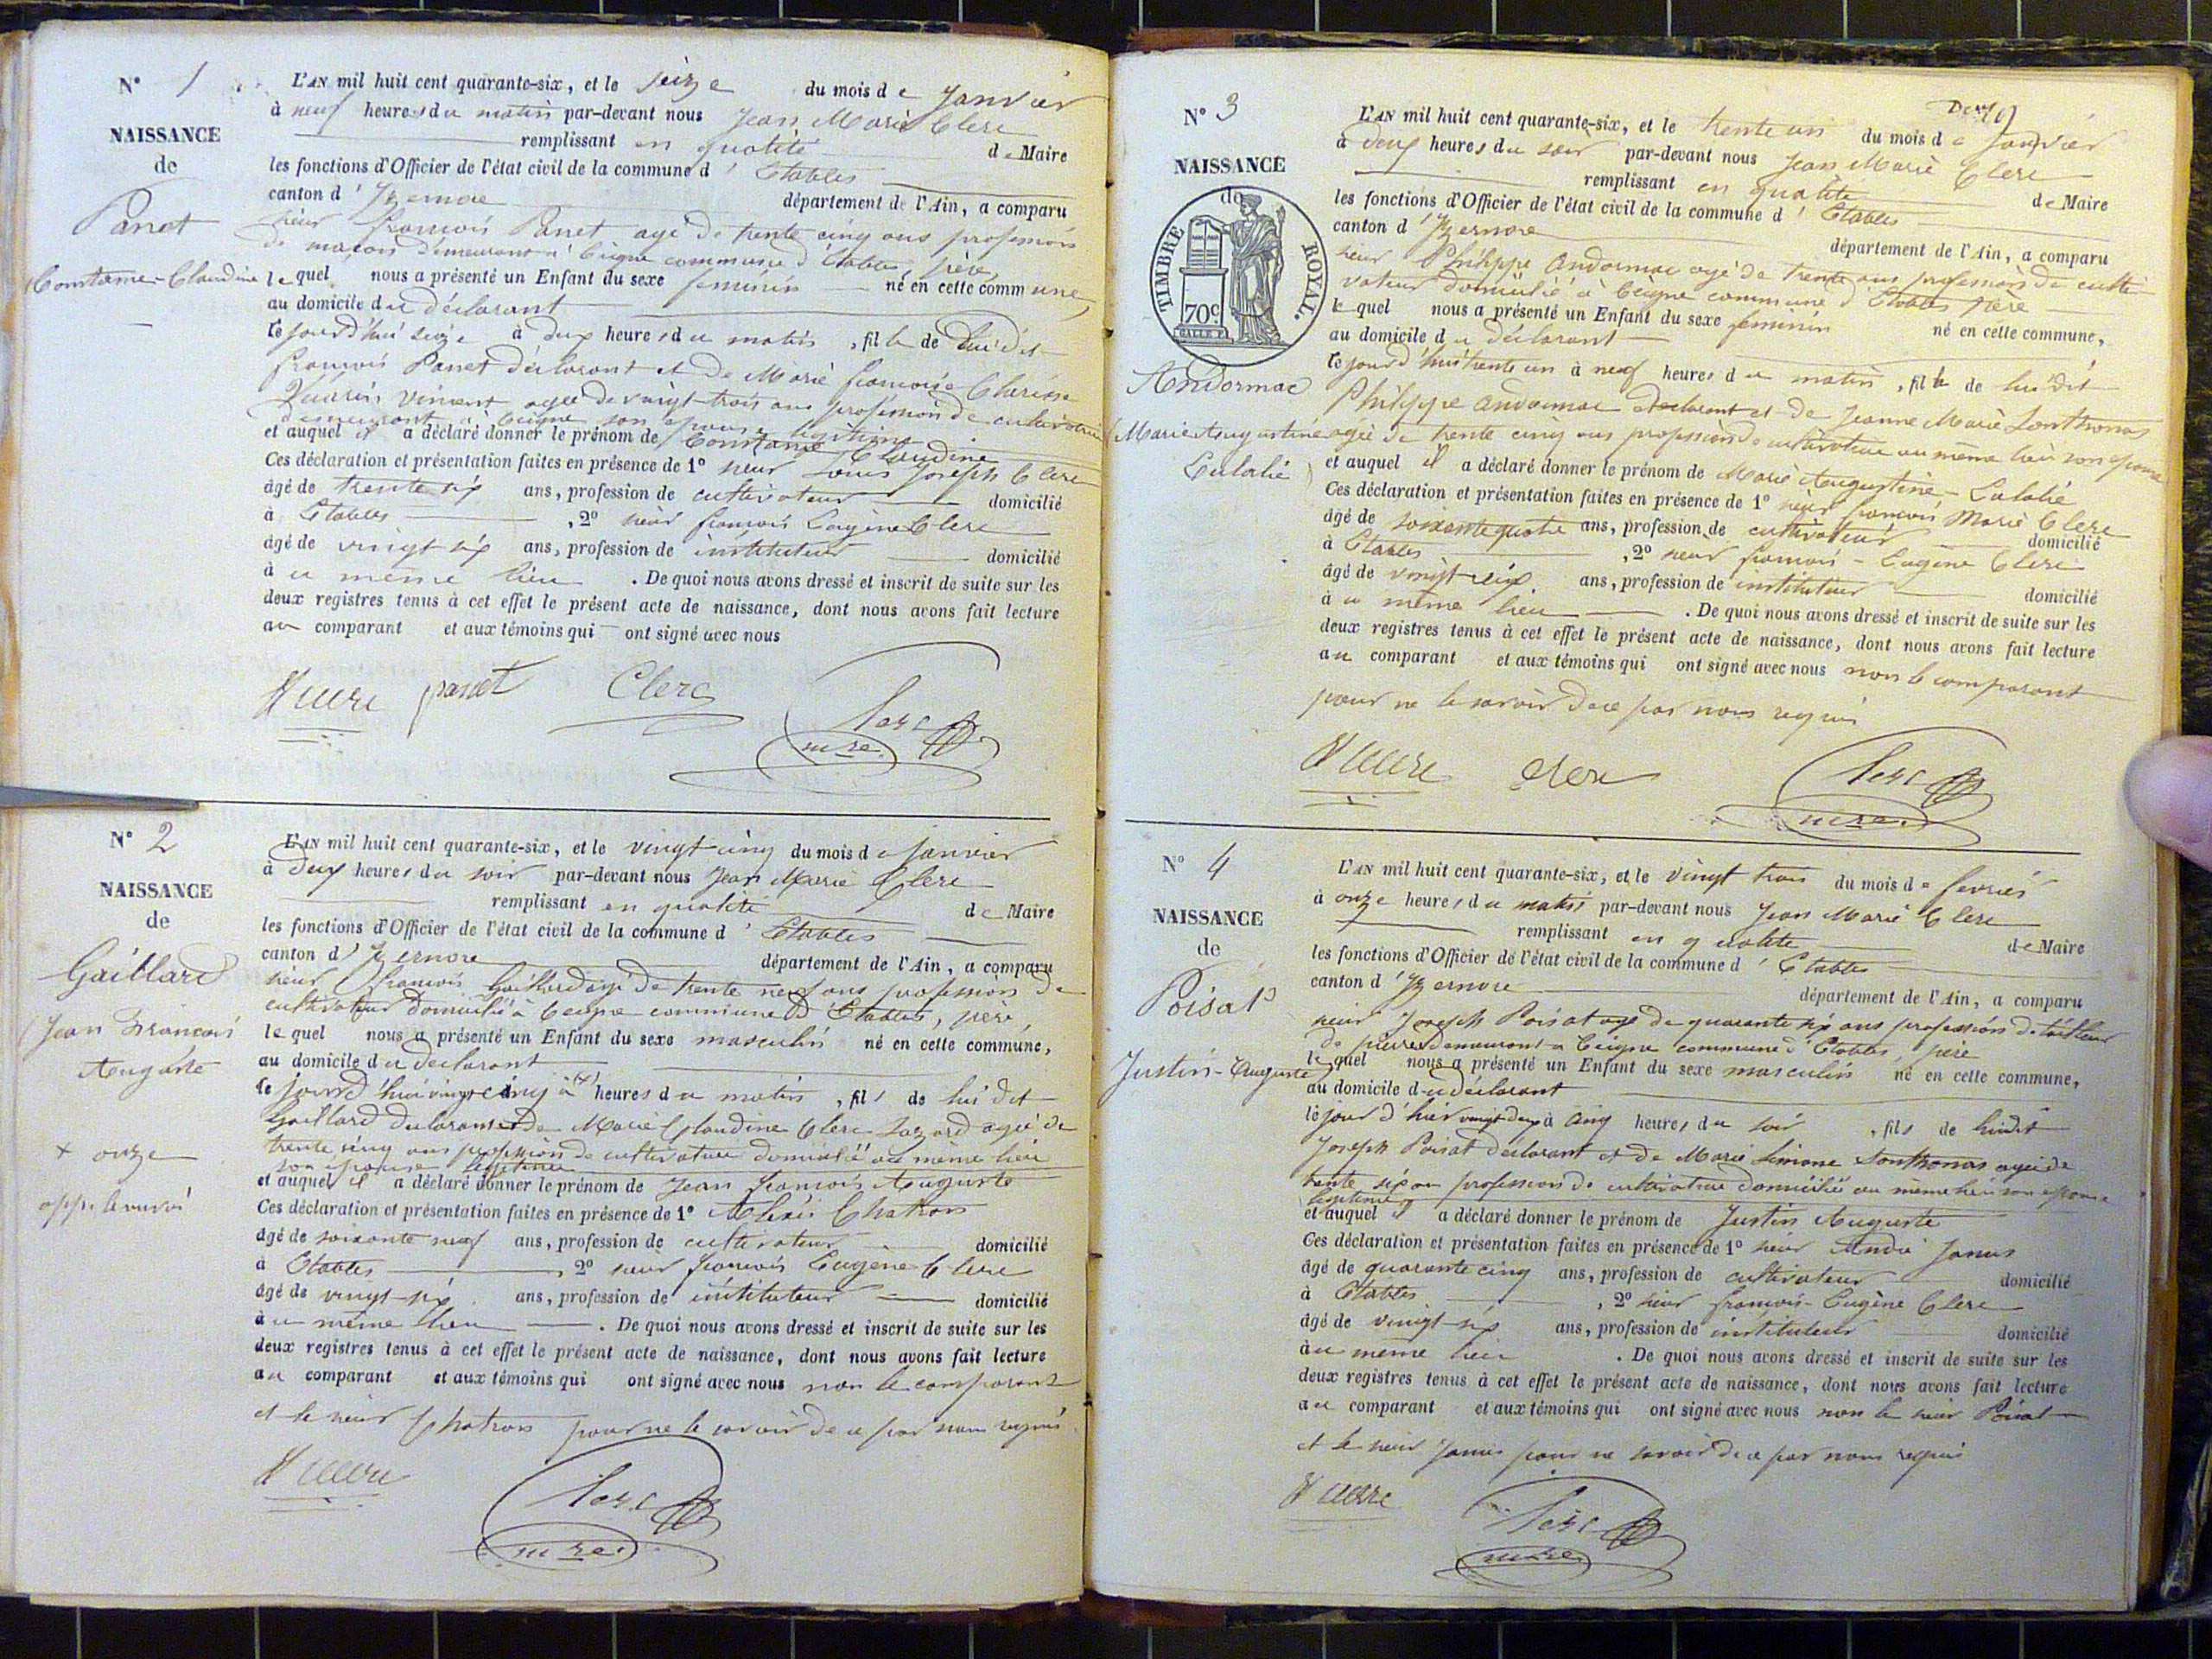 N° 1
NAISSANCE
de
Panet
Constance-Claudine
L'AN mil huit cent quarante-six, et le seize du mois de Janvier
à neuf heures du matin par-devant nous Jean Marie Clerc
remplissant en qualité de Maire
les fonctions d'Officier de l'état civil de la commune d'Etables
canton d'Izernore département de l'Ain, a comparu
sieur françois Panet agé de trente cinq ans profession
de maçon demeurant à Ceigne commune d'Etables, père,
lequel nous a présenté un Enfant du sexe féminin né en cette commune,
au domicile du déclarant
ce jourd'hui seize à deux heures du matin, fille de lui dit
françois Panet déclarant et de Marie françoise Clarisse
Vincent agée de vingt-trois ans profession de cultivatrice
demeurant à Ceigne son épouse légitime
et auquel il a déclaré donner le prénom de Constance Claudine
Ces déclaration et présentation faites en présence de 1° sieur Louis Joseph Clerc
âgé de trente six ans, profession de cultivateur domicilié
à Etables, 2° sieur françois Eugène Clerc
âgé de vingt-six ans, profession de instituteur domicilié
au même lieu. De quoi nous avons dressé et inscrit de suite sur les
deux registres tenus à cet effet le présent acte de naissance, dont nous avons fait lecture
au comparant et aux témoins qui ont signé avec nous
panet Clerc Clerc
mre
N° 2
NAISSANCE
de
Gaillard
Jean François
Auguste
+ onze
L'AN mil huit cent quarante-six, et le vingt cinq du mois de Janvier
à deux heures du soir par-devant nous Jean Marie Clerc
remplissant en qualité de Maire
les fonctions d'Officier de l'état civil de la commune d'Etables
canton d'Izernore département de l'Ain, a comparu
sieur françois Gaillard agé de trente neuf ans profession de
cultivateur domicilié à Ceigne commune d'Etables, père,
lequel nous a présenté un Enfant du sexe masculin né en cette commune,
au domicile du déclarant
ce jourd'hui vingt cinq à (+) heures du matin, fils de lui dit
Gaillard déclarant et de Marie Claudine Clerc agée de
trente cinq ans profession de cultivatrice domiciliée au même lieu
son épouse légitime
et auquel il a déclaré donner le prénom de Jean françois Auguste
Ces déclaration et présentation faites en présence de 1° Alexis Chatron
âgé de soixante neuf ans, profession de cultivateur domicilié
à Etables, 2° sieur françois Eugène Clerc
âgé de vingt-six ans, profession de instituteur domicilié
au même lieu. De quoi nous avons dressé et inscrit de suite sur les
deux registres tenus à cet effet le présent acte de naissance, dont nous avons fait lecture
au comparant et aux témoins qui ont signé avec nous non le comparant
et le sieur Chatron pour ne le savoir de ce par nous requis
Clerc
mre
N° 3
NAISSANCE
de
TIMBRE ROYAL.
70c
Andormac
Marie Augustine
Eulalie
L'AN mil huit cent quarante-six, et le trente un du mois de Janvier
à deux heures du soir par-devant nous Jean Marie Clerc
remplissant en qualité de Maire
les fonctions d'Officier de l'état civil de la commune d'Etables
canton d'Izernore département de l'Ain, a comparu
sieur Philippe Andormac agé de trente ans profession de culti-
vateur domicilié à Ceigne commune d'Etables père
lequel nous a présenté un Enfant du sexe féminin né en cette commune,
au domicile du déclarant
ce jourd'hui trente un à neuf heures du matin, fille de lui dit
Philippe Andormac déclarant et de Jeanne Marie Sonthonas
agée de trente cinq ans profession de cultivatrice au même lieu son épouse
et auquel il a déclaré donner le prénom de Marie Augustine-Eulalie
Ces déclaration et présentation faites en présence de 1° sieur françois Marie Clerc
âgé de soixante quatre ans, profession de cultivateur domicilié
à Etables, 2° sieur françois-Eugène Clerc
âgé de vingt-six ans, profession de instituteur domicilié
au même lieu. De quoi nous avons dressé et inscrit de suite sur les
deux registres tenus à cet effet le présent acte de naissance, dont nous avons fait lecture
au comparant et aux témoins qui ont signé avec nous non le comparant
pour ne le savoir de ce par nous requis
clerc Clerc
mre
N° 4
NAISSANCE
de
Poisat
Justin-Auguste
L'AN mil huit cent quarante-six, et le vingt trois du mois de fevrier
à onze heures du matin par-devant nous Jean Marie Clerc
remplissant en qualité de Maire
les fonctions d'Officier de l'état civil de la commune d'Etables
canton d'Izernore département de l'Ain, a comparu
sieur Joseph Poisat agé de quarante six ans profession de tailleur
de pierre demeurant à Ceigne commune d'Etables, père
lequel nous a présenté un Enfant du sexe masculin né en cette commune,
au domicile du déclarant
le jour d'hier vingt-deux à cinq heures du soir, fils de lui dit
Joseph Poisat déclarant et de Marie Simone Sonthonas agée de
trente six ans profession de cultivatrice domiciliée au même lieu son épouse
légitime
et auquel il a déclaré donner le prénom de Justin Auguste
Ces déclaration et présentation faites en présence de 1° sieur André Janus
âgé de quarante cinq ans, profession de cultivateur domicilié
à Etables, 2° sieur françois-Eugène Clerc
âgé de vingt-six ans, profession de instituteur domicilié
au même lieu. De quoi nous avons dressé et inscrit de suite sur les
deux registres tenus à cet effet le présent acte de naissance, dont nous avons fait lecture
au comparant et aux témoins qui ont signé avec nous non le sieur Poisat
et le sieur Janus pour ne savoir de ce par nous requis
Clerc
mre